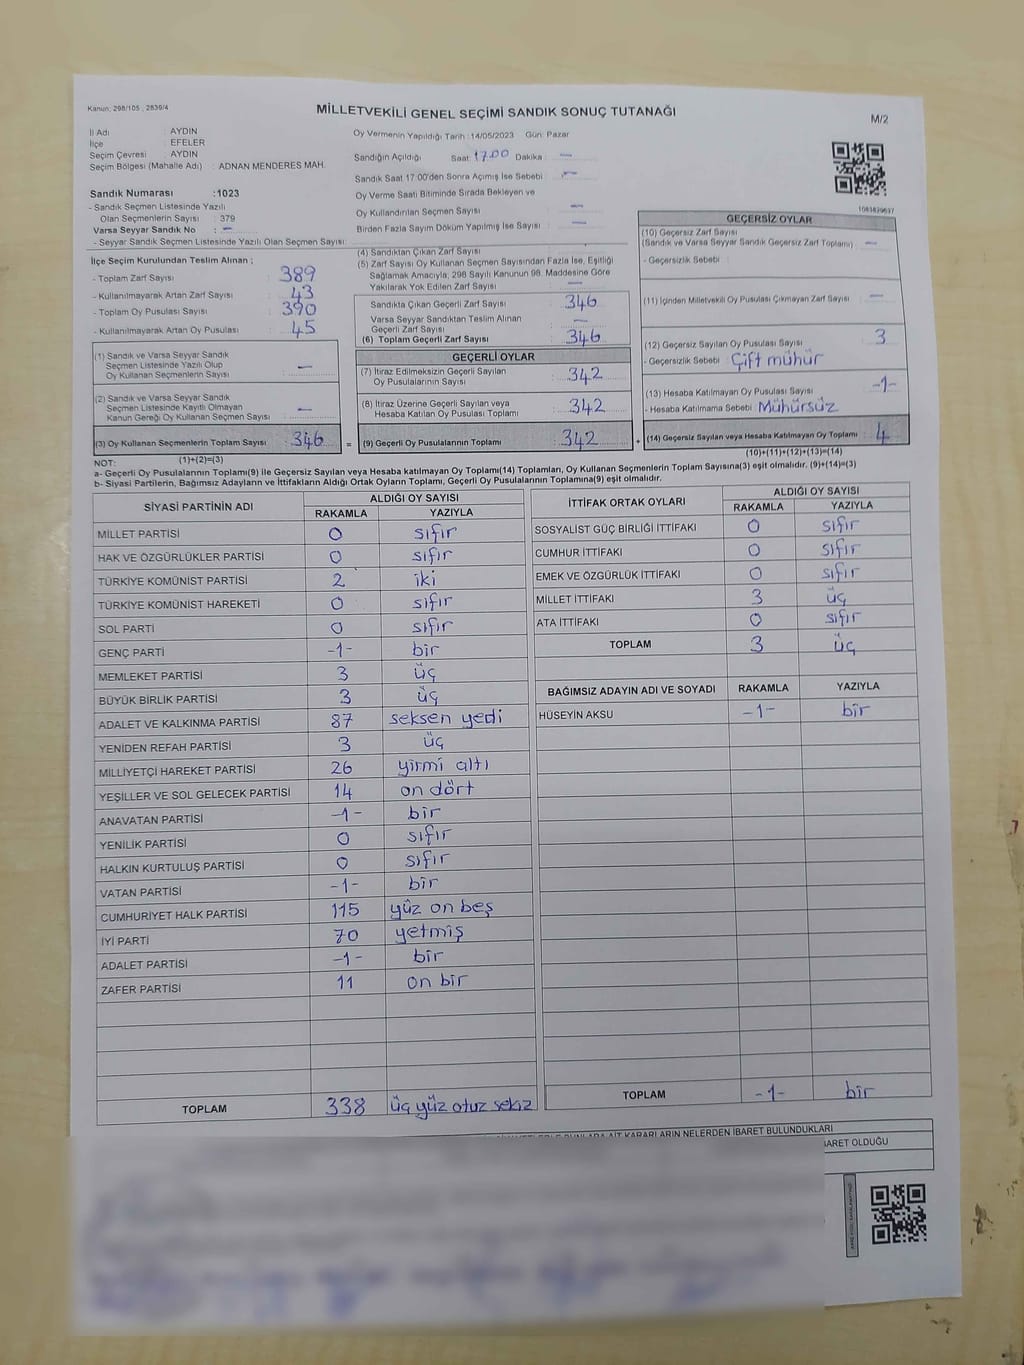 Kanun; 298/105 , 2839/4
MİLLETVEKİLİ GENEL SEÇİMİ SANDIK SONUÇ TUTANAĞI
M/2
İl Adı : AYDIN
İlçe : EFELER
Seçim Çevresi : AYDIN
Seçim Bölgesi (Mahalle Adı) : ADNAN MENDERES MAH.
Sandık Numarası :1023
- Sandık Seçmen Listesinde Yazılı
Olan Seçmenlerin Sayısı : 379
Varsa Seyyar Sandık No : —
- Seyyar Sandık Seçmen Listesinde Yazılı Olan Seçmen Sayısı:
Oy Vermenin Yapıldığı Tarih :14/05/2023 Gün: Pazar
Sandığın Açıldığı Saat: 17.00 Dakika : —
Sandık Saat 17:00'den Sonra Açımış İse Sebebi : —
Oy Verme Saati Bitiminde Sırada Bekleyen ve
Oy Kullandırılan Seçmen Sayısı : —
Birden Fazla Sayım Döküm Yapılmış İse Sayısı : —
1083829637
İlçe Seçim Kurulundan Teslim Alınan ;
- Toplam Zarf Sayısı : 389
- Kullanılmayarak Artan Zarf Sayısı : 43
- Toplam Oy Pusulası Sayısı : 390
- Kullanılmayarak Artan Oy Pusulası : 45
(1) Sandık ve Varsa Seyyar Sandık
Seçmen Listesinde Yazılı Olup
Oy Kullanan Seçmenlerin Sayısı : —
(2) Sandık ve Varsa Seyyar Sandık
Seçmen Listesinde Kayıtlı Olmayan
Kanun Gereği Oy Kullanan Seçmen Sayısı : —
(3) Oy Kullanan Seçmenlerin Toplam Sayısı : 346
(1)+(2)=(3)
(4) Sandıktan Çıkan Zarf Sayısı :
(5) Zarf Sayısı Oy Kullanan Seçmen Sayısından Fazla İse, Eşitliği
Sağlamak Amacıyla, 298 Sayılı Kanunun 98. Maddesine Göre
Yakılarak Yok Edilen Zarf Sayısı : —
Sandıkta Çıkan Geçerli Zarf Sayısı : 346
Varsa Seyyar Sandıktan Teslim Alınan
Geçerli Zarf Sayısı : —
(6) Toplam Geçerli Zarf Sayısı : 346
GEÇERLİ OYLAR
(7) İtiraz Edilmeksizin Geçerli Sayılan
Oy Pusulalarının Sayısı : 342
(8) İtiraz Üzerine Geçerli Sayılan veya
Hesaba Katılan Oy Pusulası Toplamı : 342
= (9) Geçerli Oy Pusulalarının Toplamı : 342
GEÇERSİZ OYLAR
(10) Geçersiz Zarf Sayısı
(Sandık ve Varsa Seyyar Sandık Geçersiz Zarf Toplamı) : —
- Geçersizlik Sebebi :
(11) İçinden Milletvekili Oy Pusulası Çıkmayan Zarf Sayısı : —
(12) Geçersiz Sayılan Oy Pusulası Sayısı : 3
- Geçersizlik Sebebi : Çift mühür
(13) Hesaba Katılmayan Oy Pusulası Sayısı : -1-
- Hesaba Katılmama Sebebi : Mühürsüz
+ (14) Geçersiz Sayılan veya Hesaba Katılmayan Oy Toplamı : 4
(10)+(11)+(12)+(13)=(14)
NOT:
a- Geçerli Oy Pusulalarının Toplamı(9) ile Geçersiz Sayılan veya Hesaba katılmayan Oy Toplamı(14) Toplamları, Oy Kullanan Seçmenlerin Toplam Sayısına(3) eşit olmalıdır. (9)+(14)=(3)
b- Siyasi Partilerin, Bağımsız Adayların ve İttifakların Aldığı Ortak Oyların Toplamı, Geçerli Oy Pusulalarının Toplamına(9) eşit olmalıdır.
SİYASİ PARTİNİN ADI ALDIĞI OY SAYISI
RAKAMLA YAZIYLA
MİLLET PARTİSİ 0 sıfır
HAK VE ÖZGÜRLÜKLER PARTİSİ 0 sıfır
TÜRKİYE KOMÜNİST PARTİSİ 2 iki
TÜRKİYE KOMÜNİST HAREKETİ 0 sıfır
SOL PARTİ 0 sıfır
GENÇ PARTİ -1- bir
MEMLEKET PARTİSİ 3 üç
BÜYÜK BİRLİK PARTİSİ 3 üç
ADALET VE KALKINMA PARTİSİ 87 seksen yedi
YENİDEN REFAH PARTİSİ 3 üç
MİLLİYETÇİ HAREKET PARTİSİ 26 yirmi altı
YEŞİLLER VE SOL GELECEK PARTİSİ 14 on dört
ANAVATAN PARTİSİ -1- bir
YENİLİK PARTİSİ 0 sıfır
HALKIN KURTULUŞ PARTİSİ 0 sıfır
VATAN PARTİSİ -1- bir
CUMHURİYET HALK PARTİSİ 115 yüz on beş
İYİ PARTİ 70 yetmiş
ADALET PARTİSİ -1- bir
ZAFER PARTİSİ 11 on bir
TOPLAM 338 üç yüz otuz sekiz
İTTİFAK ORTAK OYLARI ALDIĞI OY SAYISI
RAKAMLA YAZIYLA
SOSYALİST GÜÇ BİRLİĞİ İTTİFAKI 0 sıfır
CUMHUR İTTİFAKI 0 sıfır
EMEK VE ÖZGÜRLÜK İTTİFAKI 0 sıfır
MİLLET İTTİFAKI 3 üç
ATA İTTİFAKI 0 sıfır
TOPLAM 3 üç
BAĞIMSIZ ADAYIN ADI VE SOYADI RAKAMLA YAZIYLA
HÜSEYİN AKSU -1- bir
TOPLAM -1- bir
KARARLARIN NELERDEN İBARET BULUNDUKLARI
BARET OLDUĞU